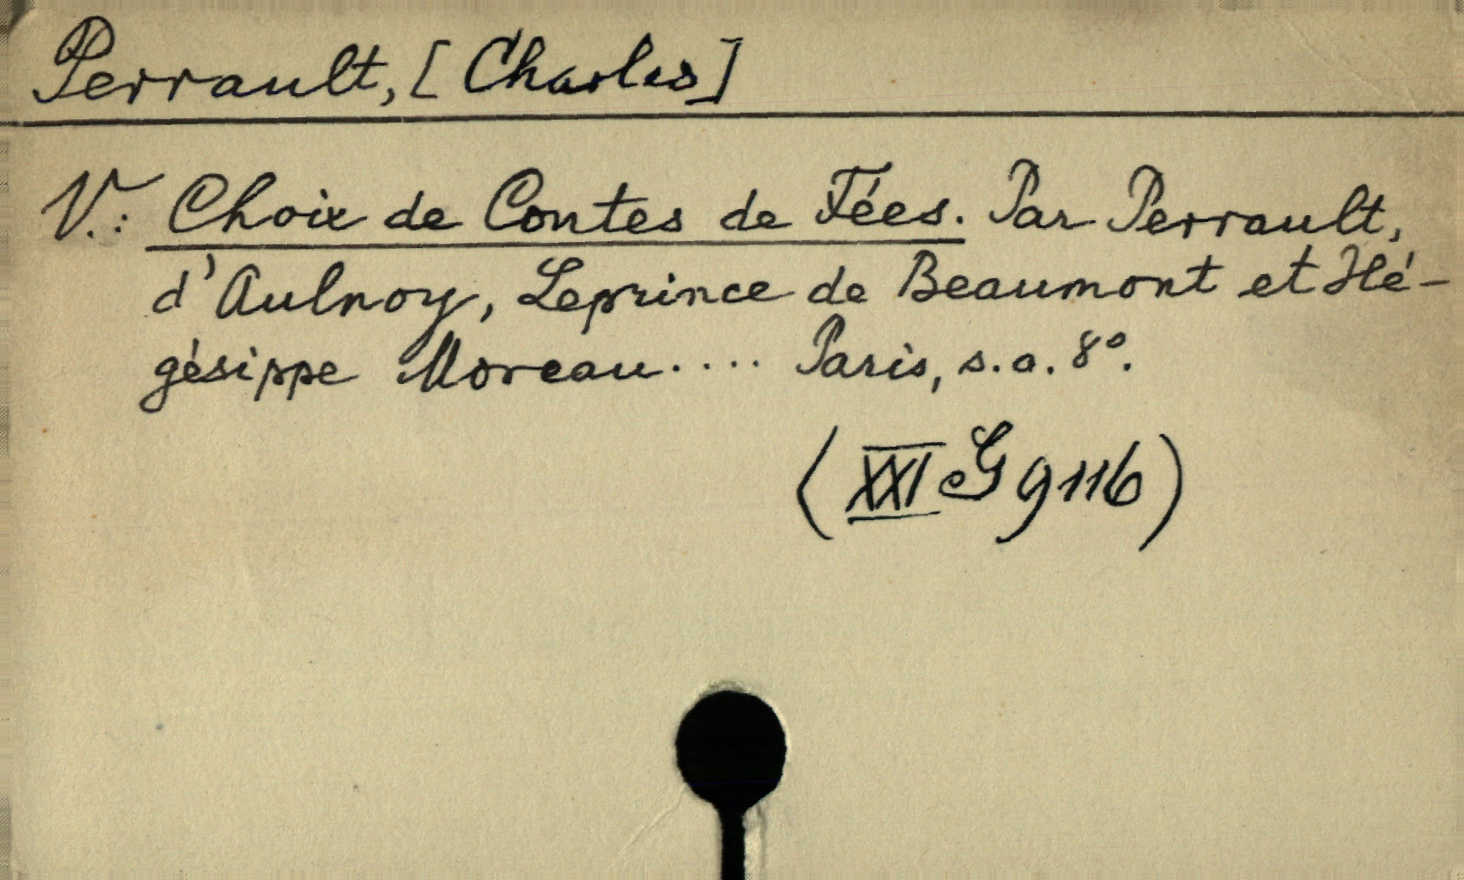 Perrault, [Charles]
V.: Choix de Contes de Fées. Par Perrault,
d'Aulnoy, Leprince de Beaumont et Hé-
gésippe Moreau.... Paris, s.a. 8°.
(XXI G 9116)